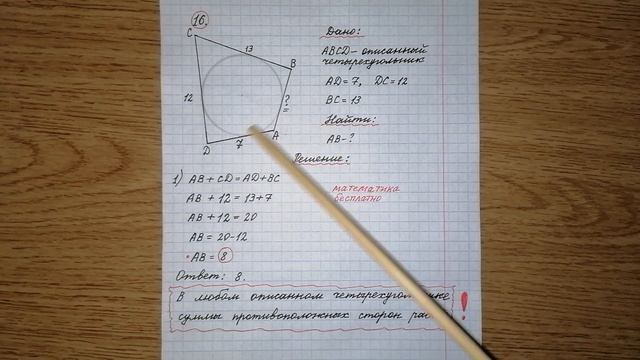 16.
C
13
B
12
?
A
7
D
Дано:
ABCD - описанный
четырехугольник
AD = 7, DC = 12
BC = 13
Найти:
AB - ?
Решение:
1) AB + CD = AD + BC
AB + 12 = 13 + 7
AB + 12 = 20
AB = 20 - 12
AB = 8
Ответ: 8.
математика
бесплатно
В любом описанном четырехугольнике
суммы противоположных сторон
!